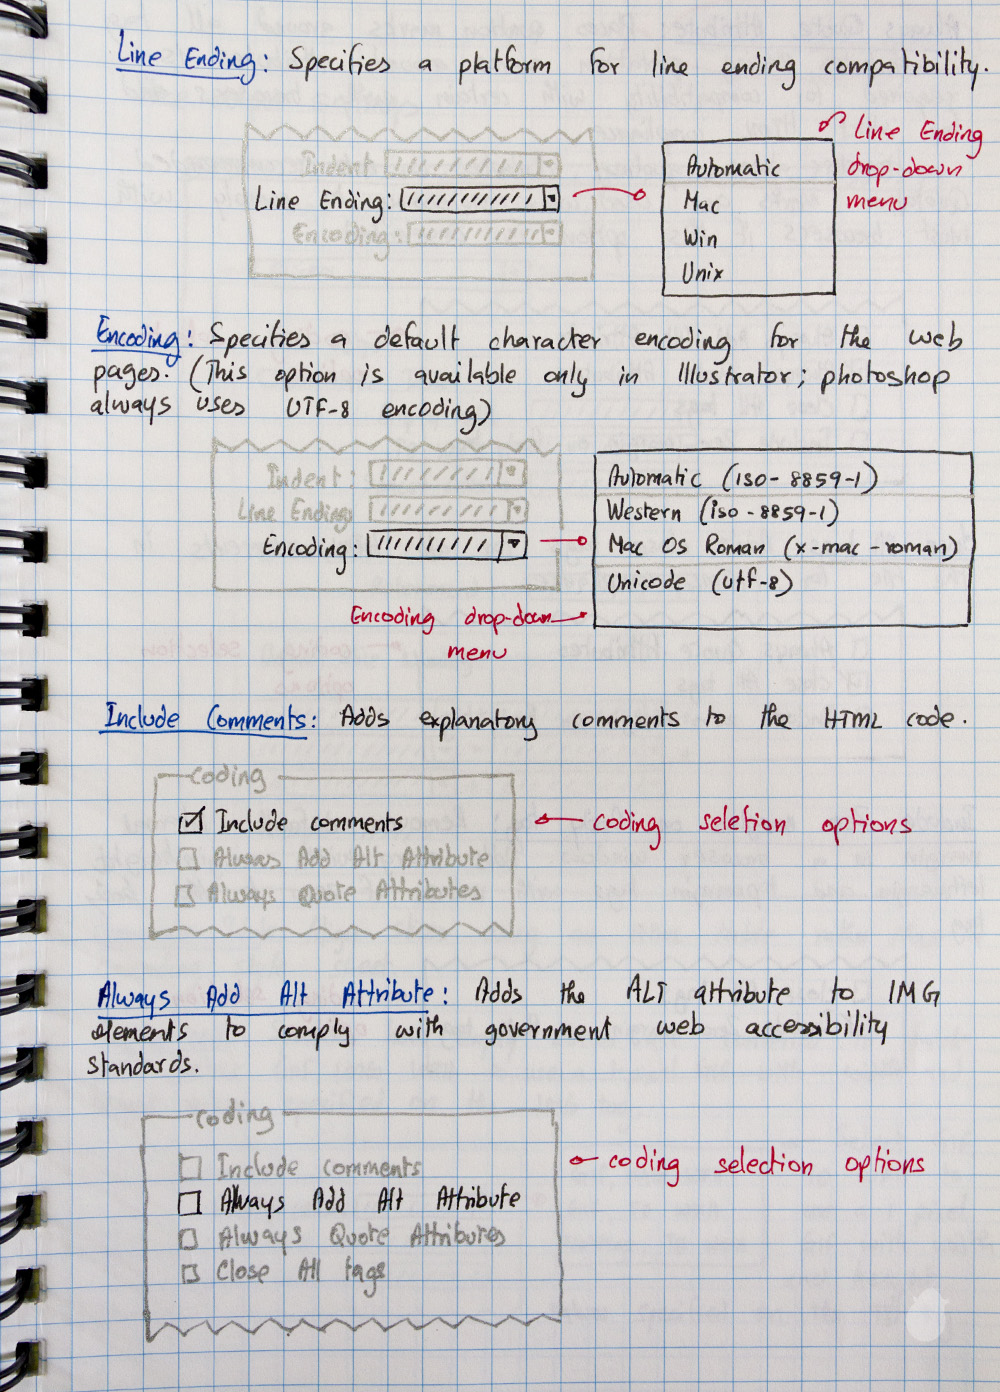 Line Ending: Specifies a platform for line ending compatibility.
Line Ending
drop-down
menu
Indent
Line Ending:
Encoding:
Automatic
Mac
Win
Unix
Encoding: Specifies a default character encoding for the web
pages. (This option is available only in Illustrator; photoshop
always uses UTF-8 encoding)
Indent:
Line Ending:
Encoding:
Automatic (iso-8859-1)
Western (iso-8859-1)
Mac OS Roman (x-mac-roman)
Unicode (utf-8)
Encoding drop-down
menu
Include Comments: Adds explanatory comments to the HTML code.
coding
Include comments
Always Add Alt Attribute
Always Quote Attributes
coding seletion options
Always Add Alt Attribute: Adds the ALT attribute to IMG
elements to comply with government web accessibility
standards.
coding
Include comments
Always Add Alt Attribute
Always Quote Attributes
Close All tags
coding selection options